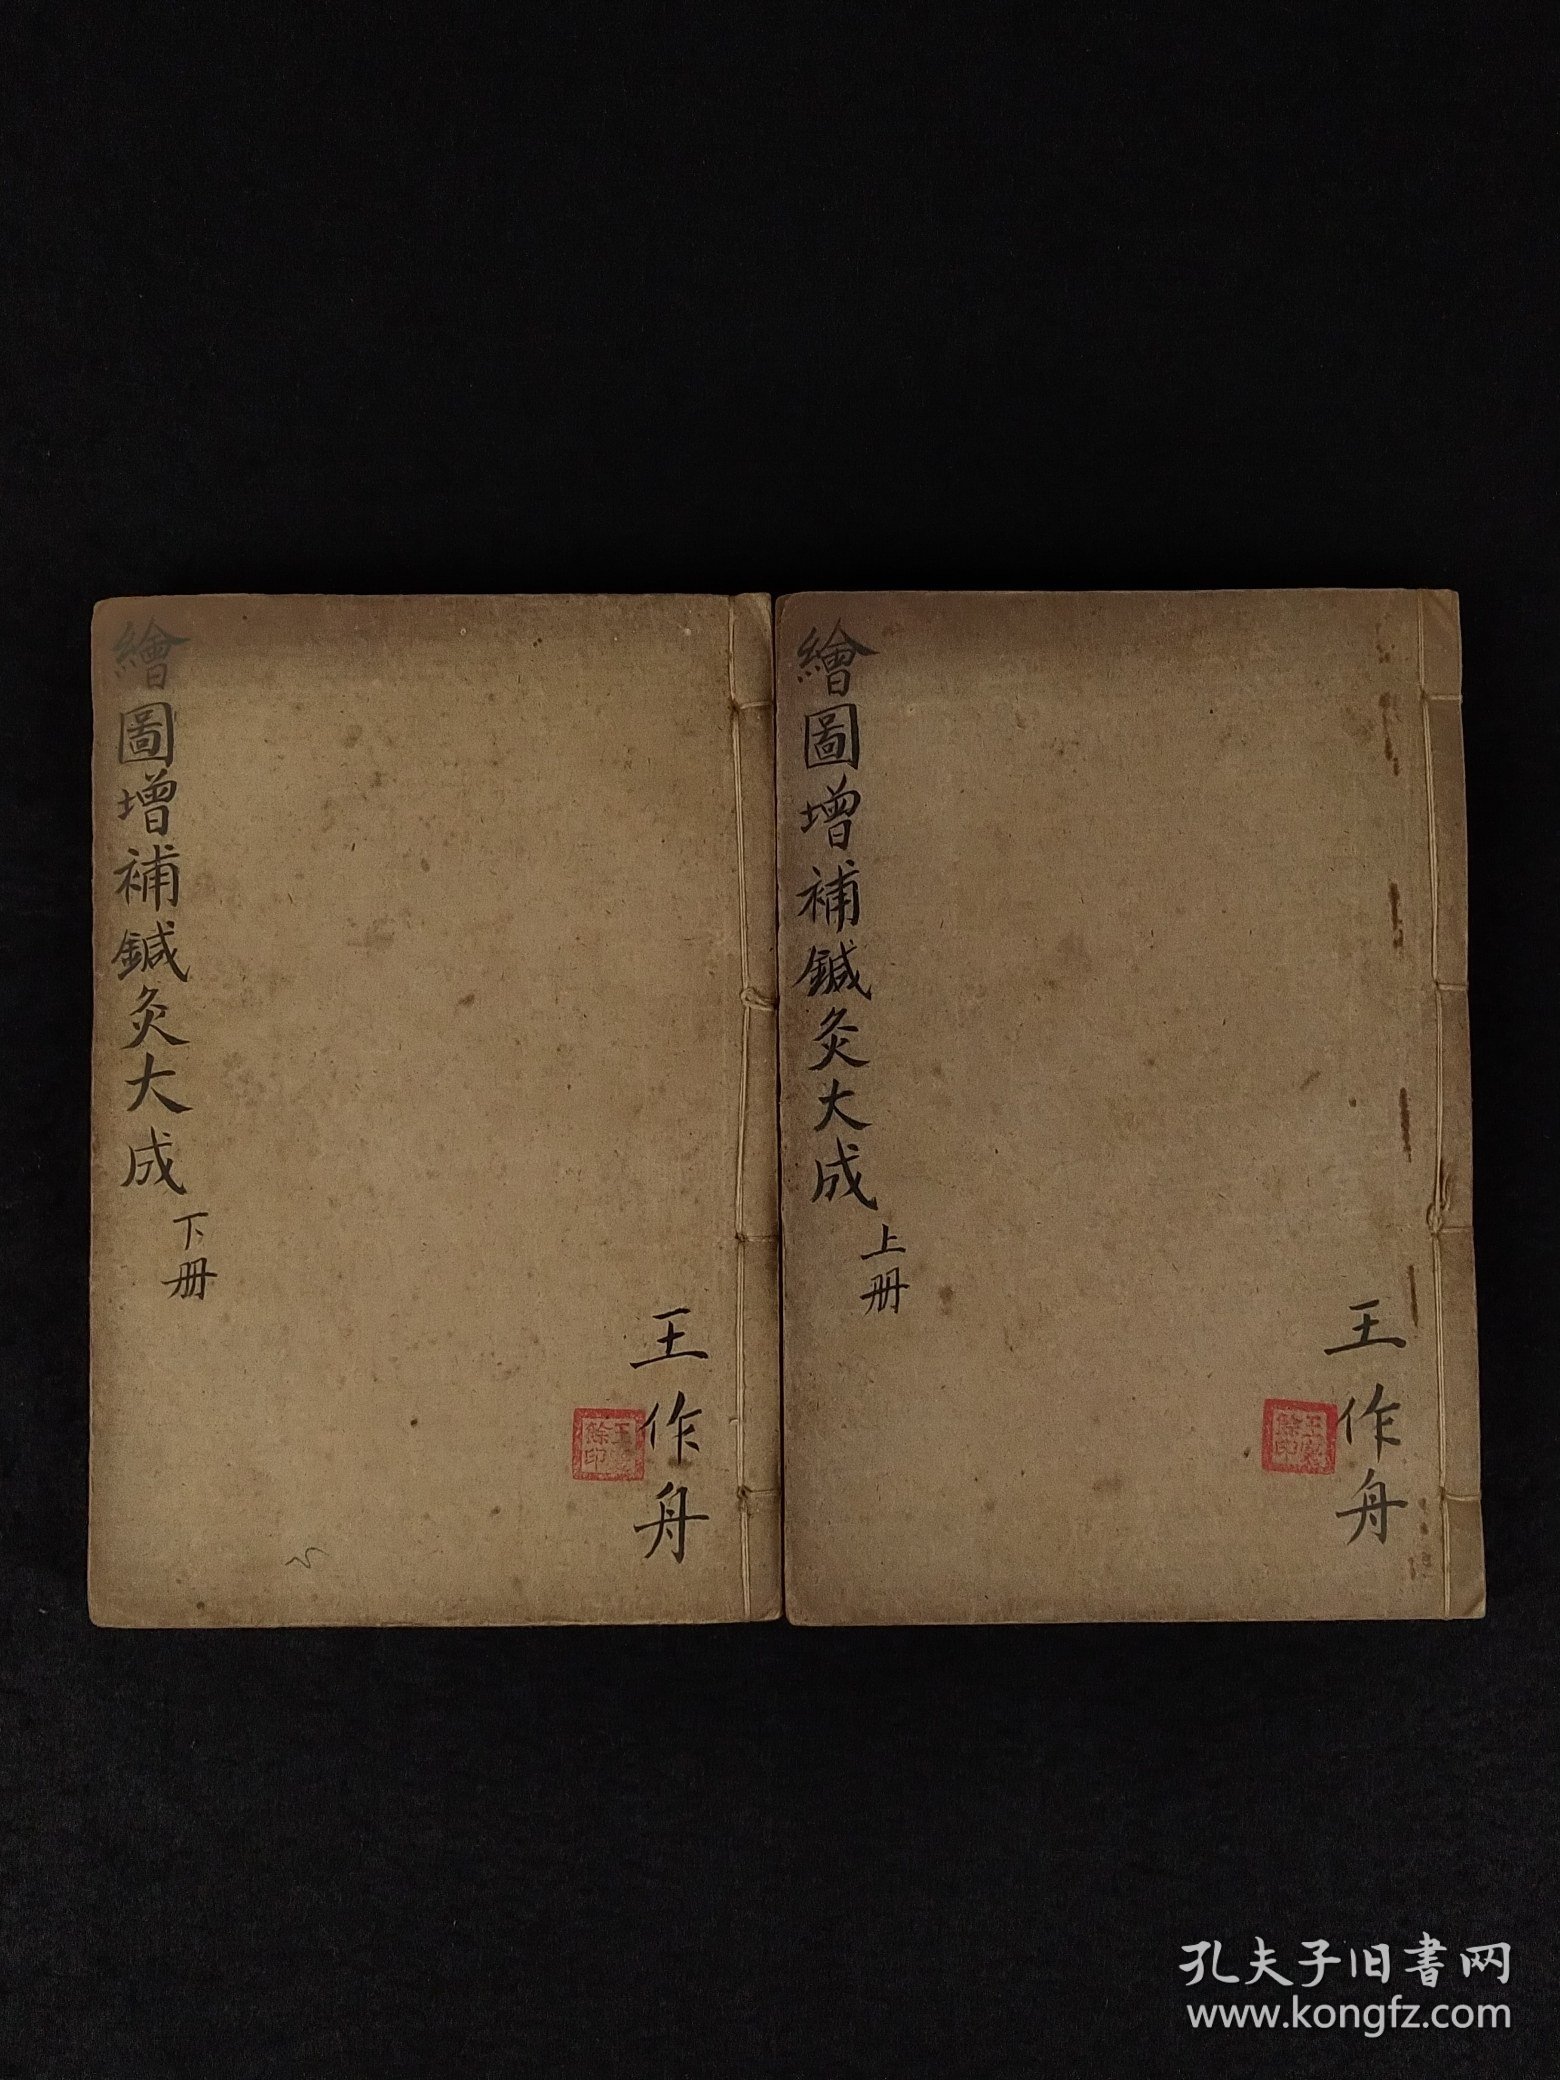 繪圖增補鍼灸大成
上册
王作舟
繪圖增補鍼灸大成
下册
王作舟
餘印
孔夫子旧書网
www.kongfz.com